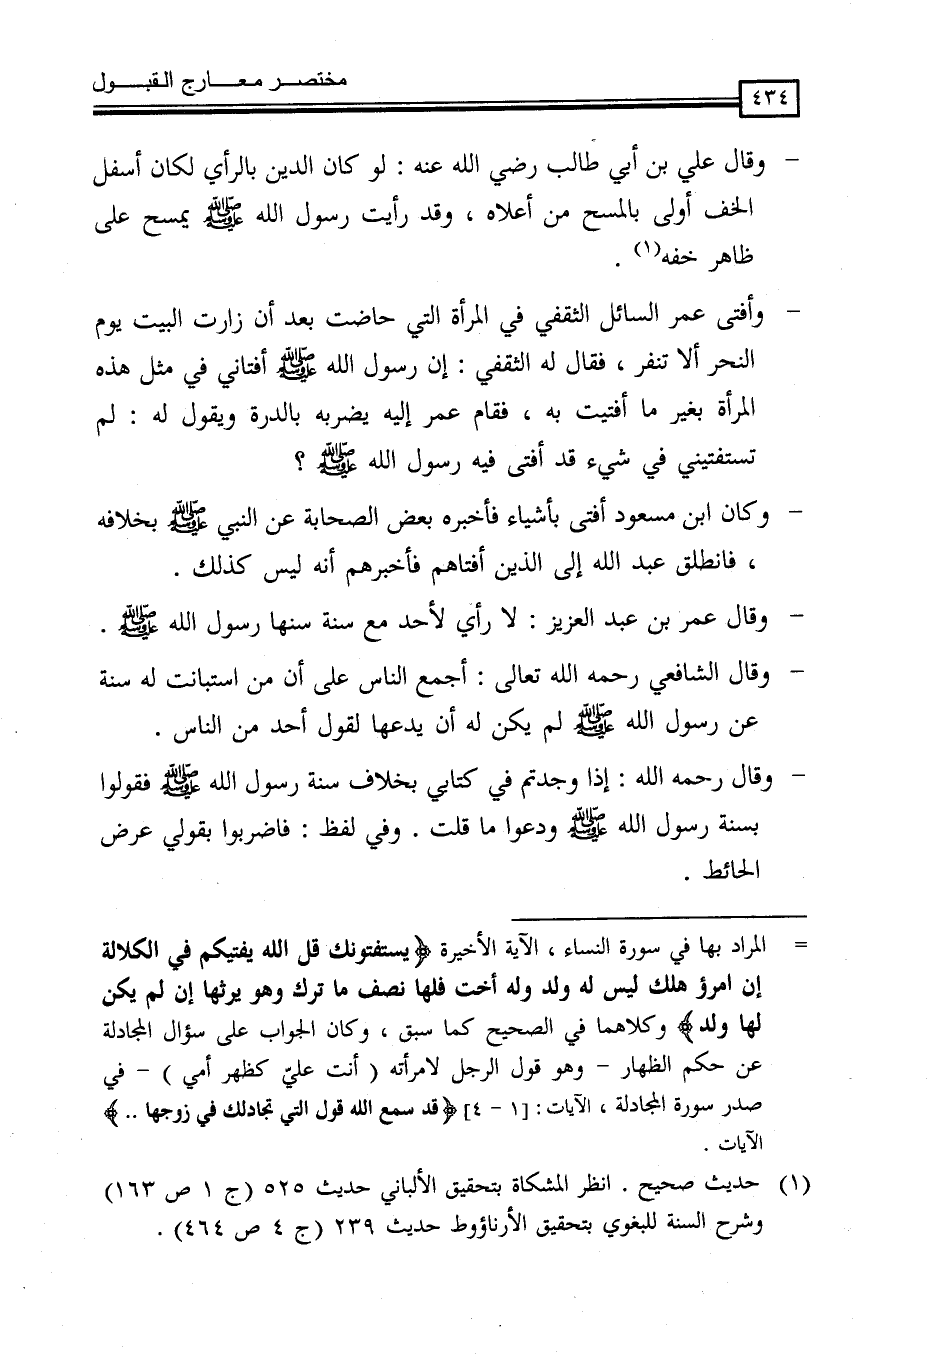 مختصر معارج القبول
٤٣٤
– وقال علي بن أبي طالب رضي الله عنه : لو كان الدين بالرأي لكان أسفل
الخف أولى بالمسح من أعلاه ، وقد رأيت رسول الله ﷺ يمسح على
ظاهر خفه(١) .
– وأفتى عمر السائل الثقفي في المرأة التي حاضت بعد أن زارت البيت يوم
النحر ألا تنفر ، فقال له الثقفي : إن رسول الله ﷺ أفتاني في مثل هذه
المرأة بغير ما أفتيت به ، فقام عمر إليه يضربه بالدرة ويقول له : لم
تستفتيني في شيء قد أفتى فيه رسول الله ﷺ ؟
– وكان ابن مسعود أفتى بأشياء فأخبره بعض الصحابة عن النبي ﷺ بخلافه
، فانطلق عبد الله إلى الذين أفتاهم فأخبرهم أنه ليس كذلك .
– وقال عمر بن عبد العزيز : لا رأي لأحد مع سنة سنها رسول الله ﷺ .
– وقال الشافعي رحمه الله تعالى : أجمع الناس على أن من استبانت له سنة
عن رسول الله ﷺ لم يكن له أن يدعها لقول أحد من الناس .
– وقال رحمه الله : إذا وجدتم في كتابي بخلاف سنة رسول الله ﷺ فقولوا
بسنة رسول الله ﷺ ودعوا ما قلت . وفي لفظ : فاضربوا بقولي عرض
الحائط .
= المراد بها في سورة النساء ، الآية الأخيرة ﴿يستفتونك قل الله يفتيكم في الكلالة
إن امرؤ هلك ليس له ولد وله أخت فلها نصف ما ترك وهو يرثها إن لم يكن
لها ولد﴾ وكلاهما في الصحيح كما سبق ، وكان الجواب على سؤال المجادلة
عن حكم الظهار – وهو قول الرجل لامرأته ( أنت عليّ كظهر أمي ) – في
صدر سورة المجادلة ، الآيات : [١ – ٤] ﴿قد سمع الله قول التي تجادلك في زوجها .. ﴾
الآيات .
(١) حديث صحيح . انظر المشكاة بتحقيق الألباني حديث ٥٢٥ (ج ١ ص ١٦٣)
وشرح السنة للبغوي بتحقيق الأرناؤوط حديث ٢٣٩ (ج ٤ ص ٤٦٤) .